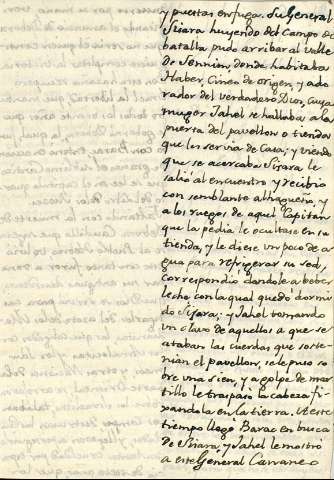 y puestas en fuga. Su General
Sisara huyendo del Campo de
batalla pudo arribar al Valle
de Sennim, donde habitaba
Haber, Cineo de origen, y ado
rador del verdadero Dios, Cuya
muger Jahel se hallaba a la
puerta del pavellon o tienda
que les servia de Casa; y viendo
que se acercaba Sisara le
salió al encuentro y recibio
con semblante alhagueño, y
a los ruegos de aquel Capitan
que la pedia le ocultase en su
tienda, y le diese un poco de a
gua para refrigerar su sed,
correspondio dandole a beber
leche con la qual quedo dormi
do Sisara; y Jahel tomando
un clavo de aquellos a que se
ataban las cuerdas que soste
nian el pavellon, se le puso so
bre una sien, y a golpe de mar
tillo le traspaso la cabeza fi-
xandola en la tierra. A este
tiempo llego Barac en busca
de Sisara, y Jahel le mostró
a este General Cananeo